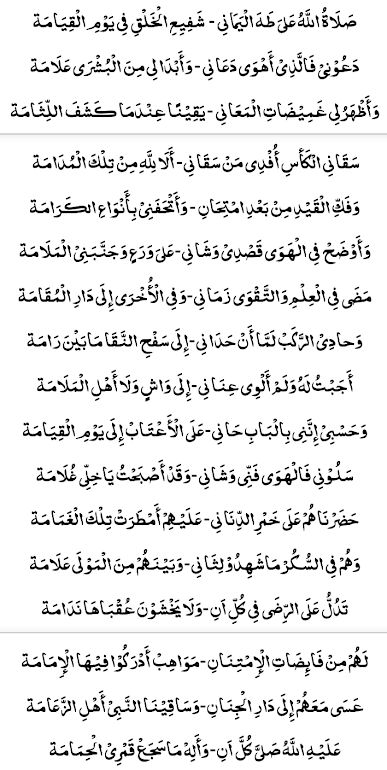 صَلَاةُ اللَّهُ عَلَى طٰهَ الْيَمَانِي - شَفِيعِ الْخَلْقِ فِي يَوْمِ الْقِيَامَةِ
دَعُوْنِيْ فَالَّذِيْ أَهْوَى دَعَانِي - وَأَبْدَا لِي مِنَ الْبُشْرَى عَلَامَة
وَأَظْهَرُ لِي غَمِيْضَاتِ الْمَعَانِي - يَقِيْنًا عِنْدَمَا كَشَفَ اللِّثَامَة
سَقَانِي الْكَأْسِ أُفْدِي مَنْ سَقَانِي - أَلَا لِلَّهِ مِنْ تِلْكَ الْمُدَامَة
وَفَكِّ الْقَيْدِ مِنْ بَعْدِ امْتِحَانِ - وَأَتْحَفَنِيْ بِأَنْوَاعِ الكَرَامَة
وَأَوْضَحْ فِي الْهَوَى قَصْدِيْ وَشَانِي - عَلَى وَرَعٍ وَجَنَّبَنِيْ الْمَلَامَة
مَضَى فِي الْعِلْمِ وَالتَّقْوَى زَمَانِي - وَفِي الْأُخْرَى إِلَى دَارِ الْمُقَامَة
وَحادِيْ الرَّكْبْ لَمَّا أَنْ حَدَانِي - إِلَى سَفْحِ النَّقَا مَا بَيْنَ رَامَة
أَجَبْتُ لَهُ وَلَمْ أَلْوِي عِنَانِي - إِلَى وَاشٍ وَلَا أَهْلِ الْمَلَامَة
وَحَسْبِيْ إِنَّنِي بِالْبَابِ حَانِي - عَلَى الْأَعْتَابْ إِلَى يَوْمِ الْقِيَامَة
سَلُوْنِي فَالْهَوَى فَنِّى وَشَانِي - وَقَدْ أَصْبَحْتُ يَا خِلِّي غُلَامَة
حَضَرْنَا هُمْ عَلَى خَمْرِ الدِّنَانِي - عَلَيْهِمْ أَمْطَرَتْ تِلْكَ الْغَمَامَة
وَهُمْ فِي السُّكُرْ مَا شَهِدُوْ لِثَانِي - وَبَيْنَهُمْ مِنَ الْمَوْلَى عَلَامَة
تَدُلُّ عَلَى الرِّضَى فِي كُلِّ اٰنِ - وَلَا يَخْشَوْنَ عُقْبَاهَا نَدَامَة
لَهُمْ مِنْ فَائِضَاتِ الْإِمْتِنَانِ - مَوَاهِبْ أَدْرَكُوْا فِيْهَا الْإِمَامَة
عَسَى مَعَهُمْ إِلَى دَارِ الْجِنَانِ - وَسَاقِيْنَا النَّبِيْ أَهْلِ الزَّعَامَة
عَلَيْهِ اللَّهُ صَلَّى كُلَّ اٰنِ - وَأٰلِهْ مَا سَجَعْ قَمْرِيْ الْحِمَامَة